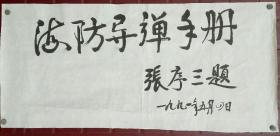 海防导弹手册
張序三題
一九九一年五月四日